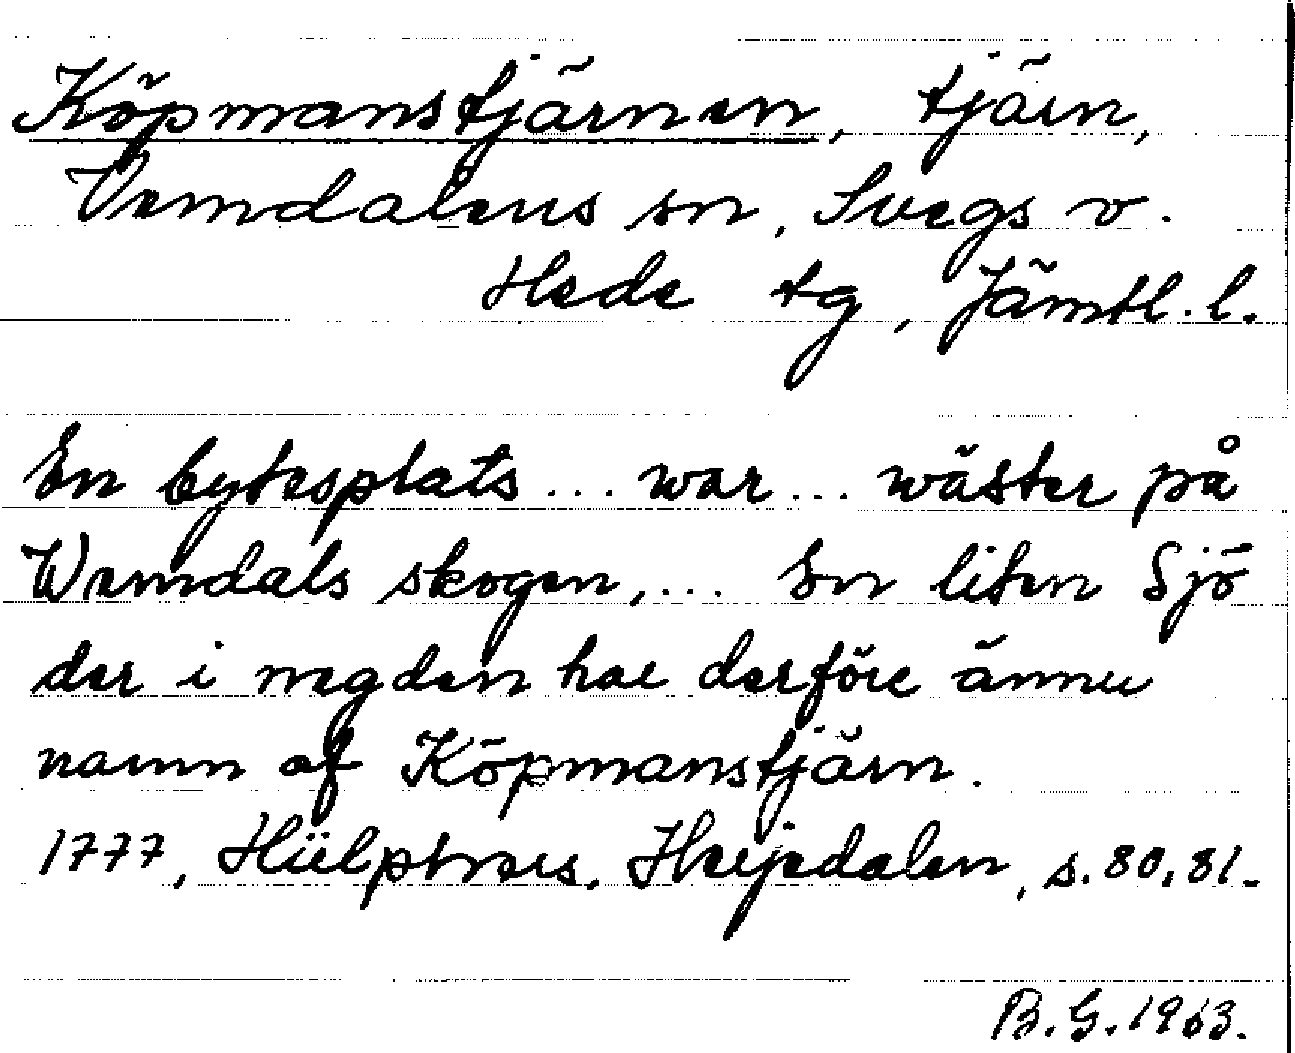 Köpmanstjärnen, tjärn,
Vemdalens sn, Svegs o.
Hede tg, Jämtl. l.
En bytesplats ... war ... wäster på
Wemdals skogen, ... En liten Sjö
der i negden har derföre ännu
namn af Köpmanstjärn.
1777, Hülphers, Herjedalen, s. 80, 81.
B. G. 1963.